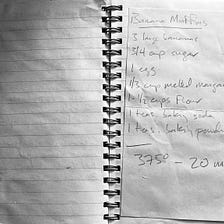 Banana Muffins
3 large bananas
3/4 cup sugar
1 egg
1/3 cup melted margar
1-1/2 cups Flour
1 teas. baking soda
1 teas. baking powder
375° - 20 m